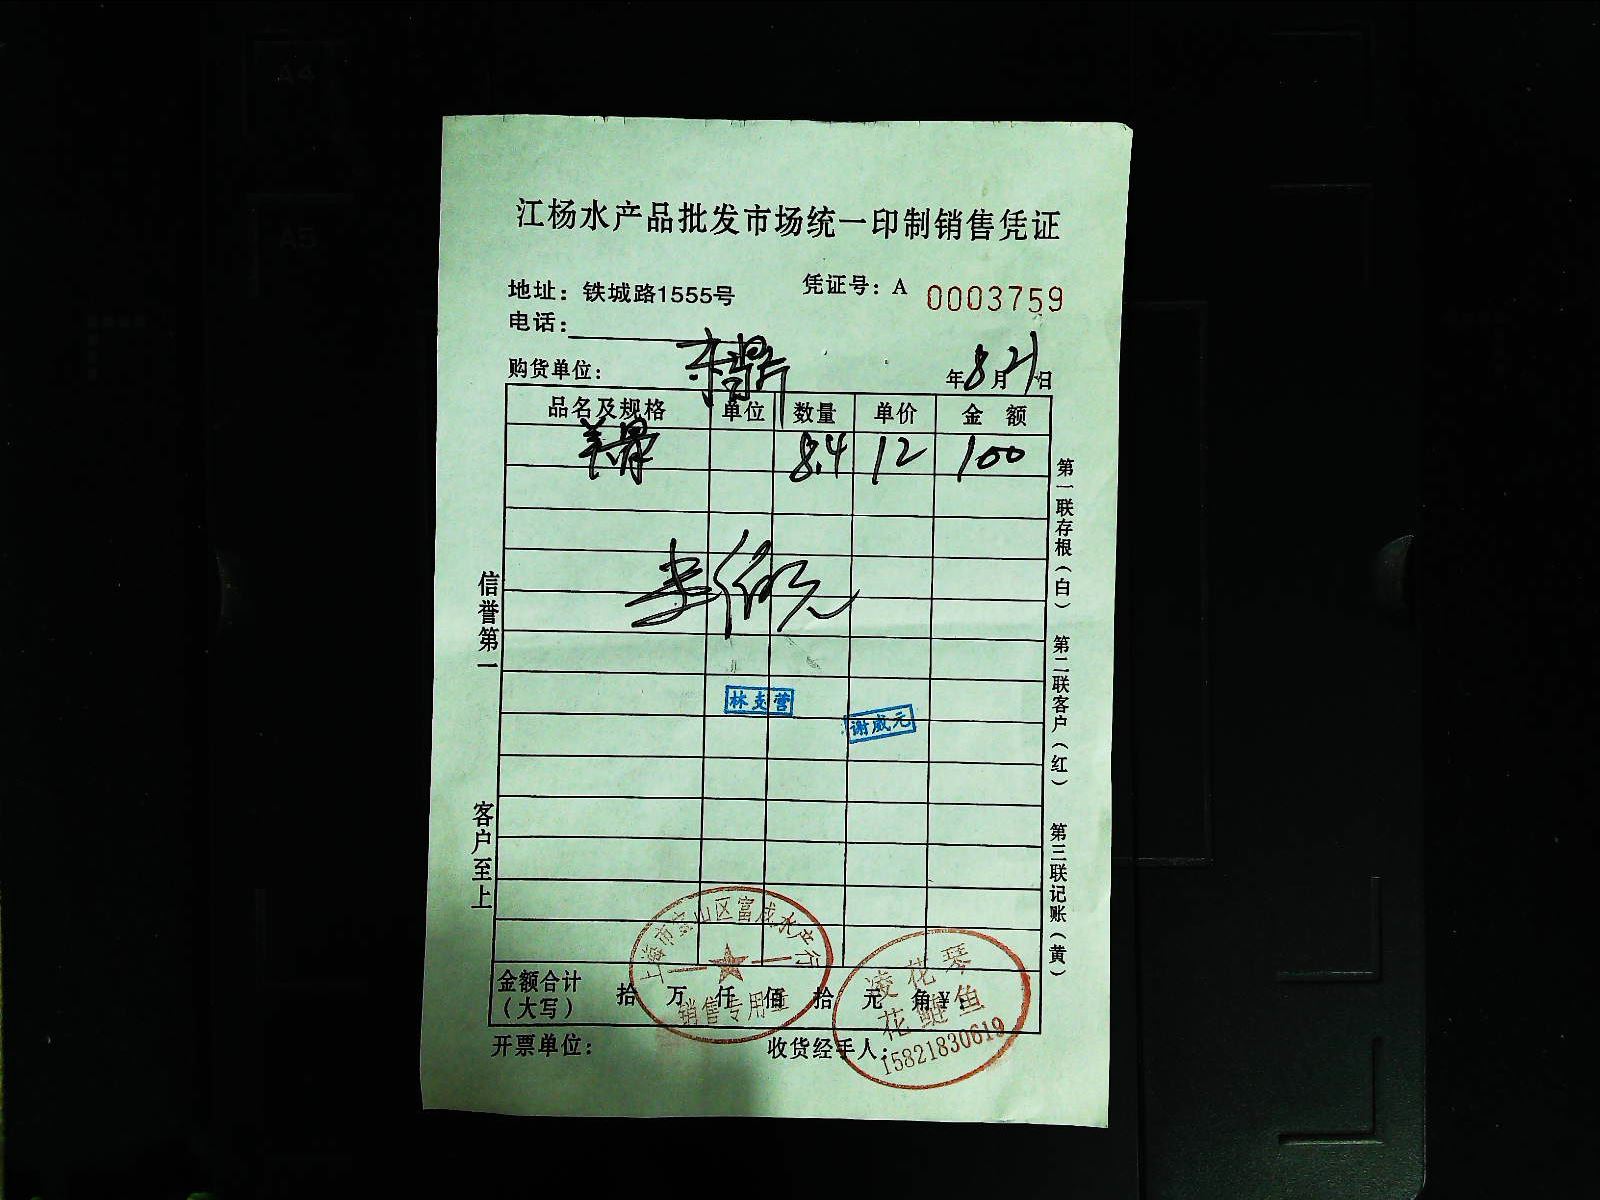 江杨水产品批发市场统一印制销售凭证
地址：铁城路1555号 凭证号：A 0003759
电话：
购货单位： 年8月21日
品名及规格 单位 数量 单价 金额
8.4 12 100
林支营
谢威元
信誉第一
客户至上
第一联存根（白）
第二联客户（红）
第三联记账（黄）
上海市宝山区富成水产行
销售专用章
凌花琴
花鲢鱼
15821830619
金额合计
（大写） 拾 万 仟 佰 拾 元 角 ¥：
开票单位： 收货经手人：